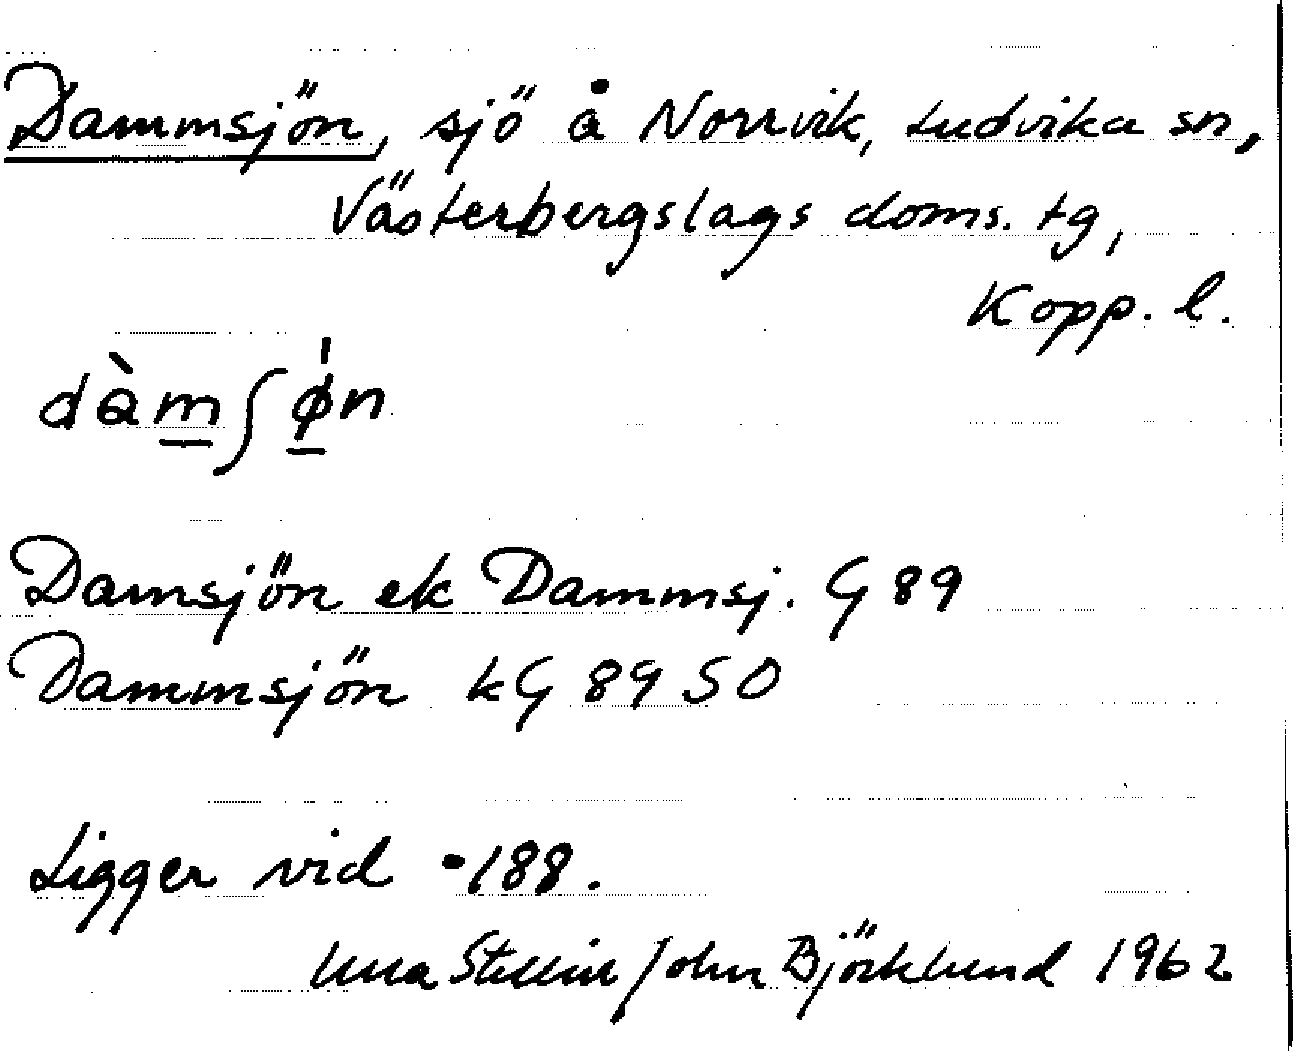 Dammsjön, sjö å Norrvik, Ludvika sn,
Västerbergslags doms. tg,
Kopp. l.
dàmʃø̍n
Damsjön ek Dammsj. G 89
Dammsjön kG 89 SO
Ligger vid •188.
John Björklund 1962